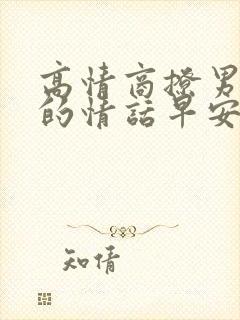 高情商撩男
的情话早安
知情